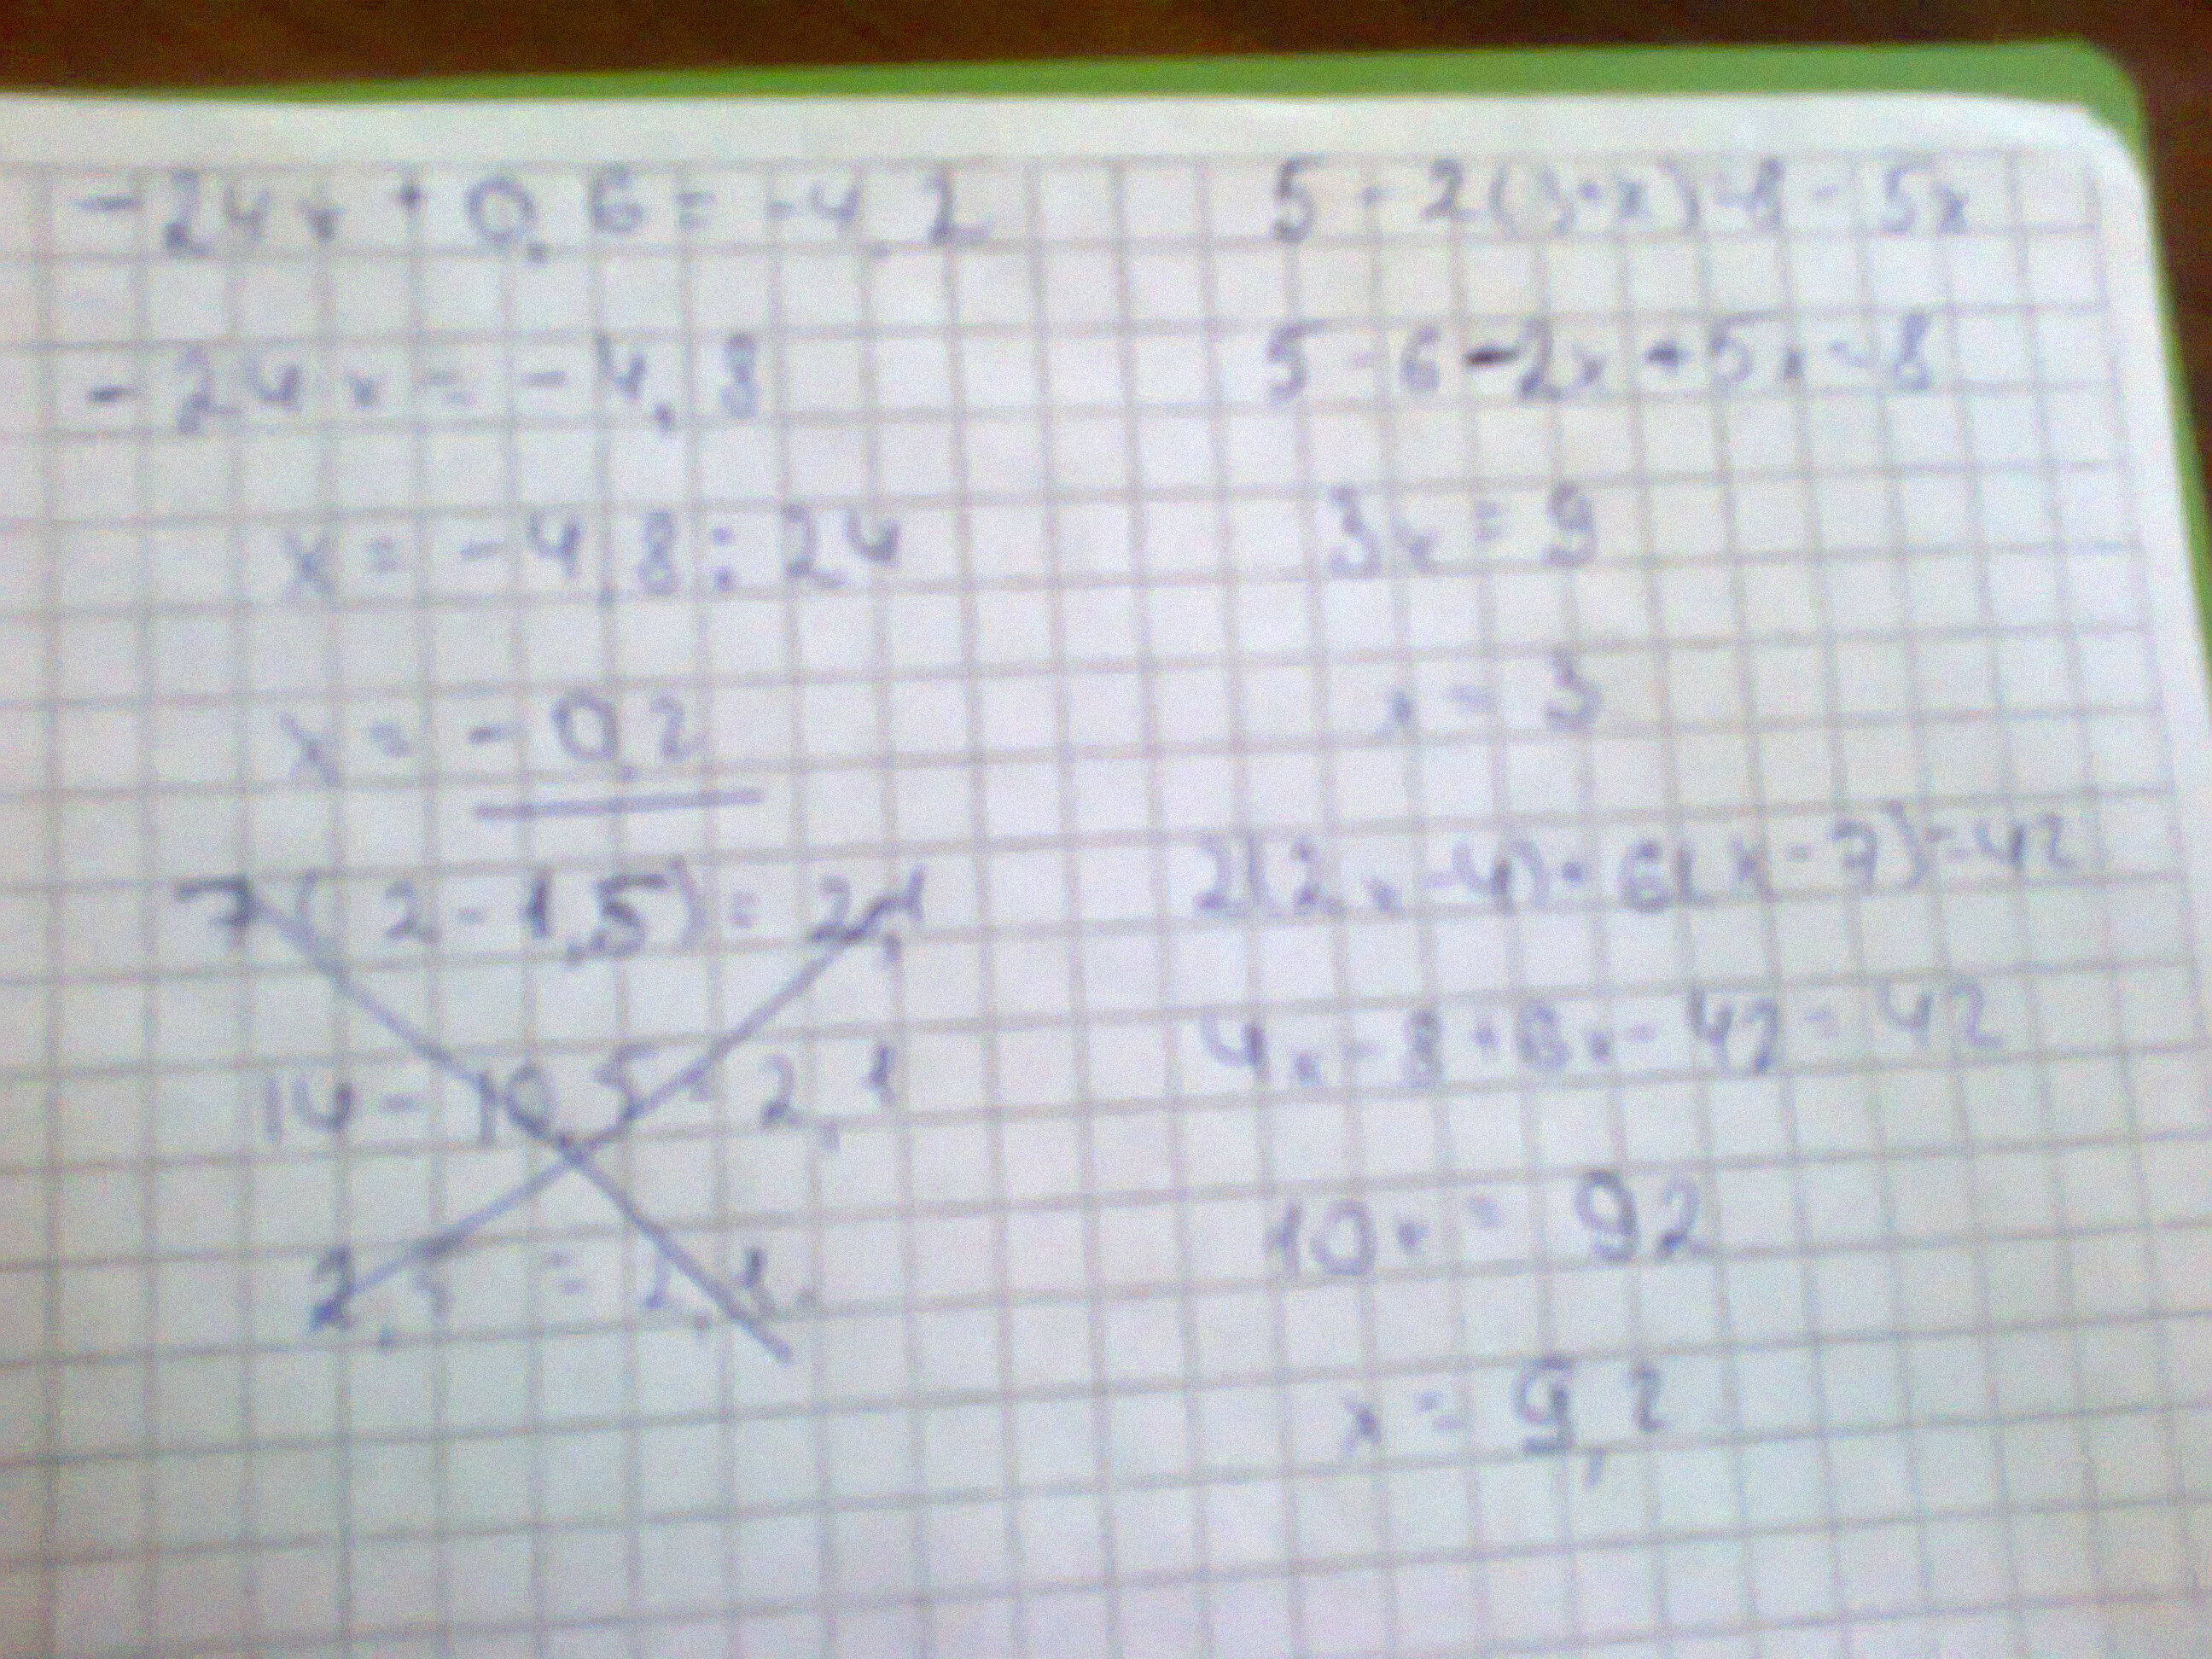 -24x + 0,6 = -4,2
-24x = -4,8
x = -4,8 : 24
x = -0,2
7(2 - 1,5) = 2,1
14 - 10,5 = 2,1
2,5 = 2,1
5 - 2(3+x) = 8 - 5x
5 - 6 - 2x + 5x = 8
3x = 9
x = 3
2(2x - 4) + 6(x - 7) = 42
4x - 8 + 6x - 42 = 42
10x = 92
x = 9,2